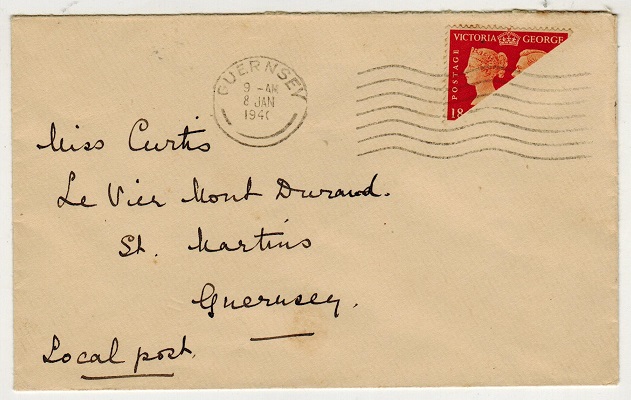 VICTORIA GEORGE
POSTAGE
18
GUERNSEY
9 - AM
8 JAN
194
Miss Curtis
Le Vier Mont Durand.
St. Martins
Guernsey.
Local post.